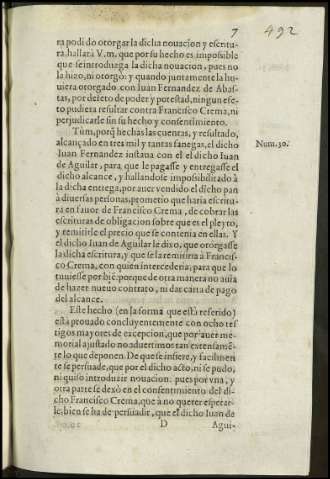 7 492
ra podido otorgar la dicha nouacion y escritu-
ra, hallarà V.m. que por su hecho es imposible
que se introduzga la dicha nouacion, pues no
la hizo, ni otorgò: y quando juntamente la hu-
uiera otorgado con Iuan Fernandez de Abas-
tas, por defeto de poder y potestad, ningun efe-
cto pudiera resultar contra Francisco Crema, ni
perjudicarle sin su hecho y consentimiento.
Tũm, porq̃ hechas las cuentas, y resultado,
alcançado en tres mil y tantas fanegas, el dicho
Iuan Fernandez instaua con el el dicho Iuan
de Aguilar, para que le pagasse y entregasse el
dicho alcance, y hallandose imposibilitado à
la dicha entrega, por auer vendido el dicho pan
à diuersas personas, prometio que haria escritu
ra en fauor de Francisco Crema, de cobrar las
escrituras de obligacion sobre que es el pleyto,
y remitirle el precio que se contenia en ellas. Y
el dicho Iuan de Aguilar le dixo, que otorgasse
la dicha escritura, y que se la remitiria à Francis-
co Crema, con quien intercederia, para que lo
tuuiesse por biẽ: porque de otra manera no auia
de hazer nueuo contrato, ni dar carta de pago
del alcance.
Num. 30.
Este hecho (en la forma que està referido)
està prouado concluyentemente con ocho tes
tigos mayores de excepcion, que por auer me-
morial ajustado no aduertimos tan extensamẽ-
te lo que deponen. De que se infiere, y facilmen
te se persuade, que por el dicho acto, ni se pudo,
ni quiso introduzir nouacion: pues por vna, y
otra parte se dexò en el consentimiento del di-
cho Francisco Crema, que à no querer esperar-
le, bien se ha de persuadir, que el dicho Iuan de
D Agui-